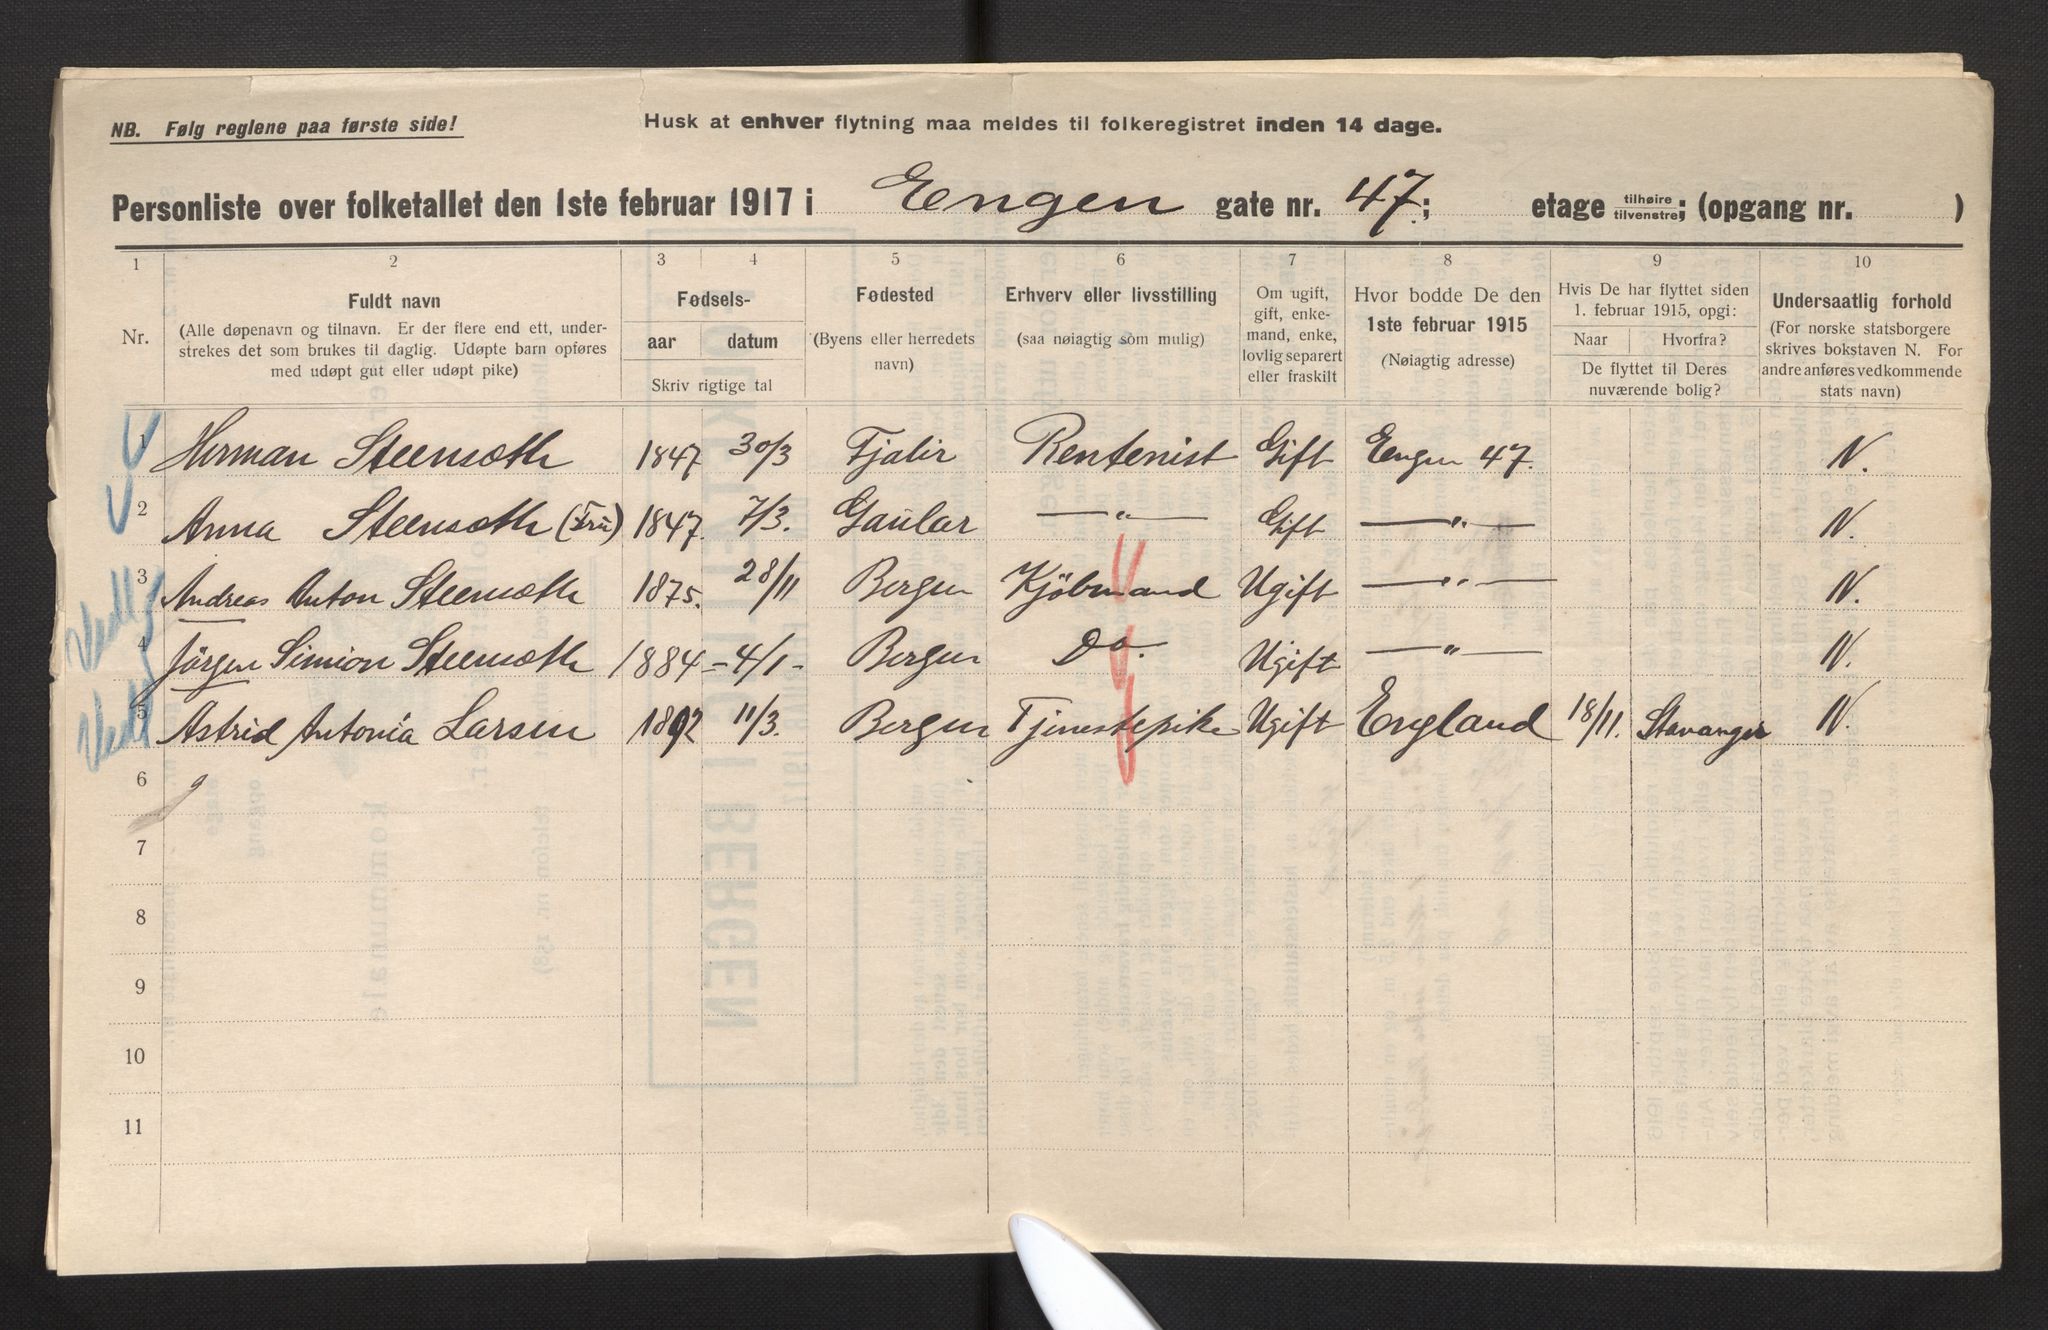 NB. Følg reglene paa første side!
Husk at enhver flytning maa meldes til folkeregistret inden 14 dage.
Personliste over folketallet den 1ste februar 1917 i Eengen gate nr. 47.; etage tilhøire tilvenstre; (opgang nr. )
1 2 3 4 5 6 7 8 9 10
Nr.
Fuldt navn
(Alle døpenavn og tilnavn. Er der flere end ett, under-
strekes det som brukes til daglig. Udøpte barn opføres
med udøpt gut eller udøpt pike)
Fødsels-
aar datum
Skriv rigtige tal
Fødested
(Byens eller herredets
navn)
Erhverv eller livsstilling
(saa nøiagtig som mulig)
Om ugift,
gift, enke-
mand, enke,
lovlig separert
eller fraskilt
Hvor bodde De den
1ste februar 1915
(Nøiagtig adresse)
Hvis De har flyttet siden
1. februar 1915, opgi:
Naar Hvorfra?
De flyttet til Deres
nuværende bolig?
Undersaatlig forhold
(For norske statsborgere
skrives bokstaven N. For
andre anføres vedkommende
stats navn)
1 Herman Steensæth 1847 30/3 Fjalir Rentenist Gift Eengen 47. N.
2 Anna Steensæth (Fru) 1847. 7/3. Gaular —"— Gift —"— N.
3 Andreas Anton Steensæth 1875. 28/11 Bergen Kjöbmand Ugift —"— N.
4 Jörgen Simion Steensæth 1884 - 4/1 - Bergen Do. Ugift —"— N.
5 Astrid Antonia Larsen 1892 11/3. Bergen Tjenestepike Ugift England 18/11. Stavanger N.
6
7
8
9
10
11